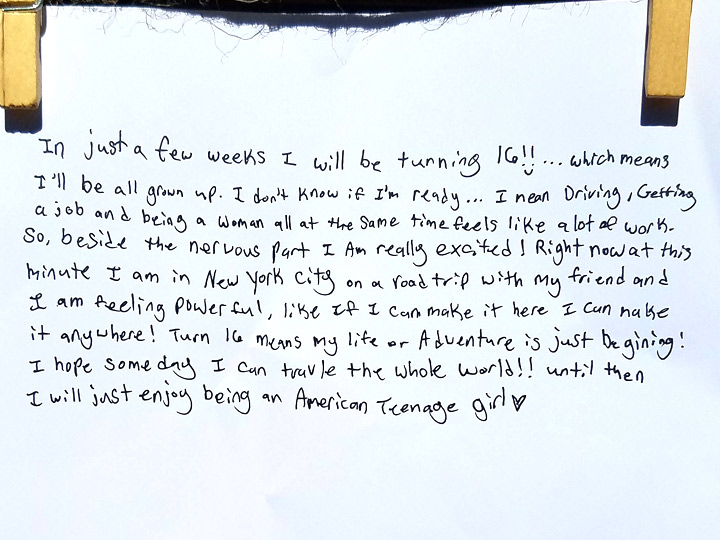 In just a few weeks I will be turnning 16!! ... which means
I'll be all grown up. I don't know if I'm ready... I mean Driving, Getting
a job and being a woman all at the same time feels like a lot of work.
So, beside the nervous part I Am really excited! Right now at this
minute I am in New York City on a road trip with my friend and
I am feeling powerful, like If I can make it here I can make
it anywhere! Turn 16 means my life or Adventure is just begining!
I hope some day I can travle the whole world!! until then
I will just enjoy being an American Teenage girl ♥